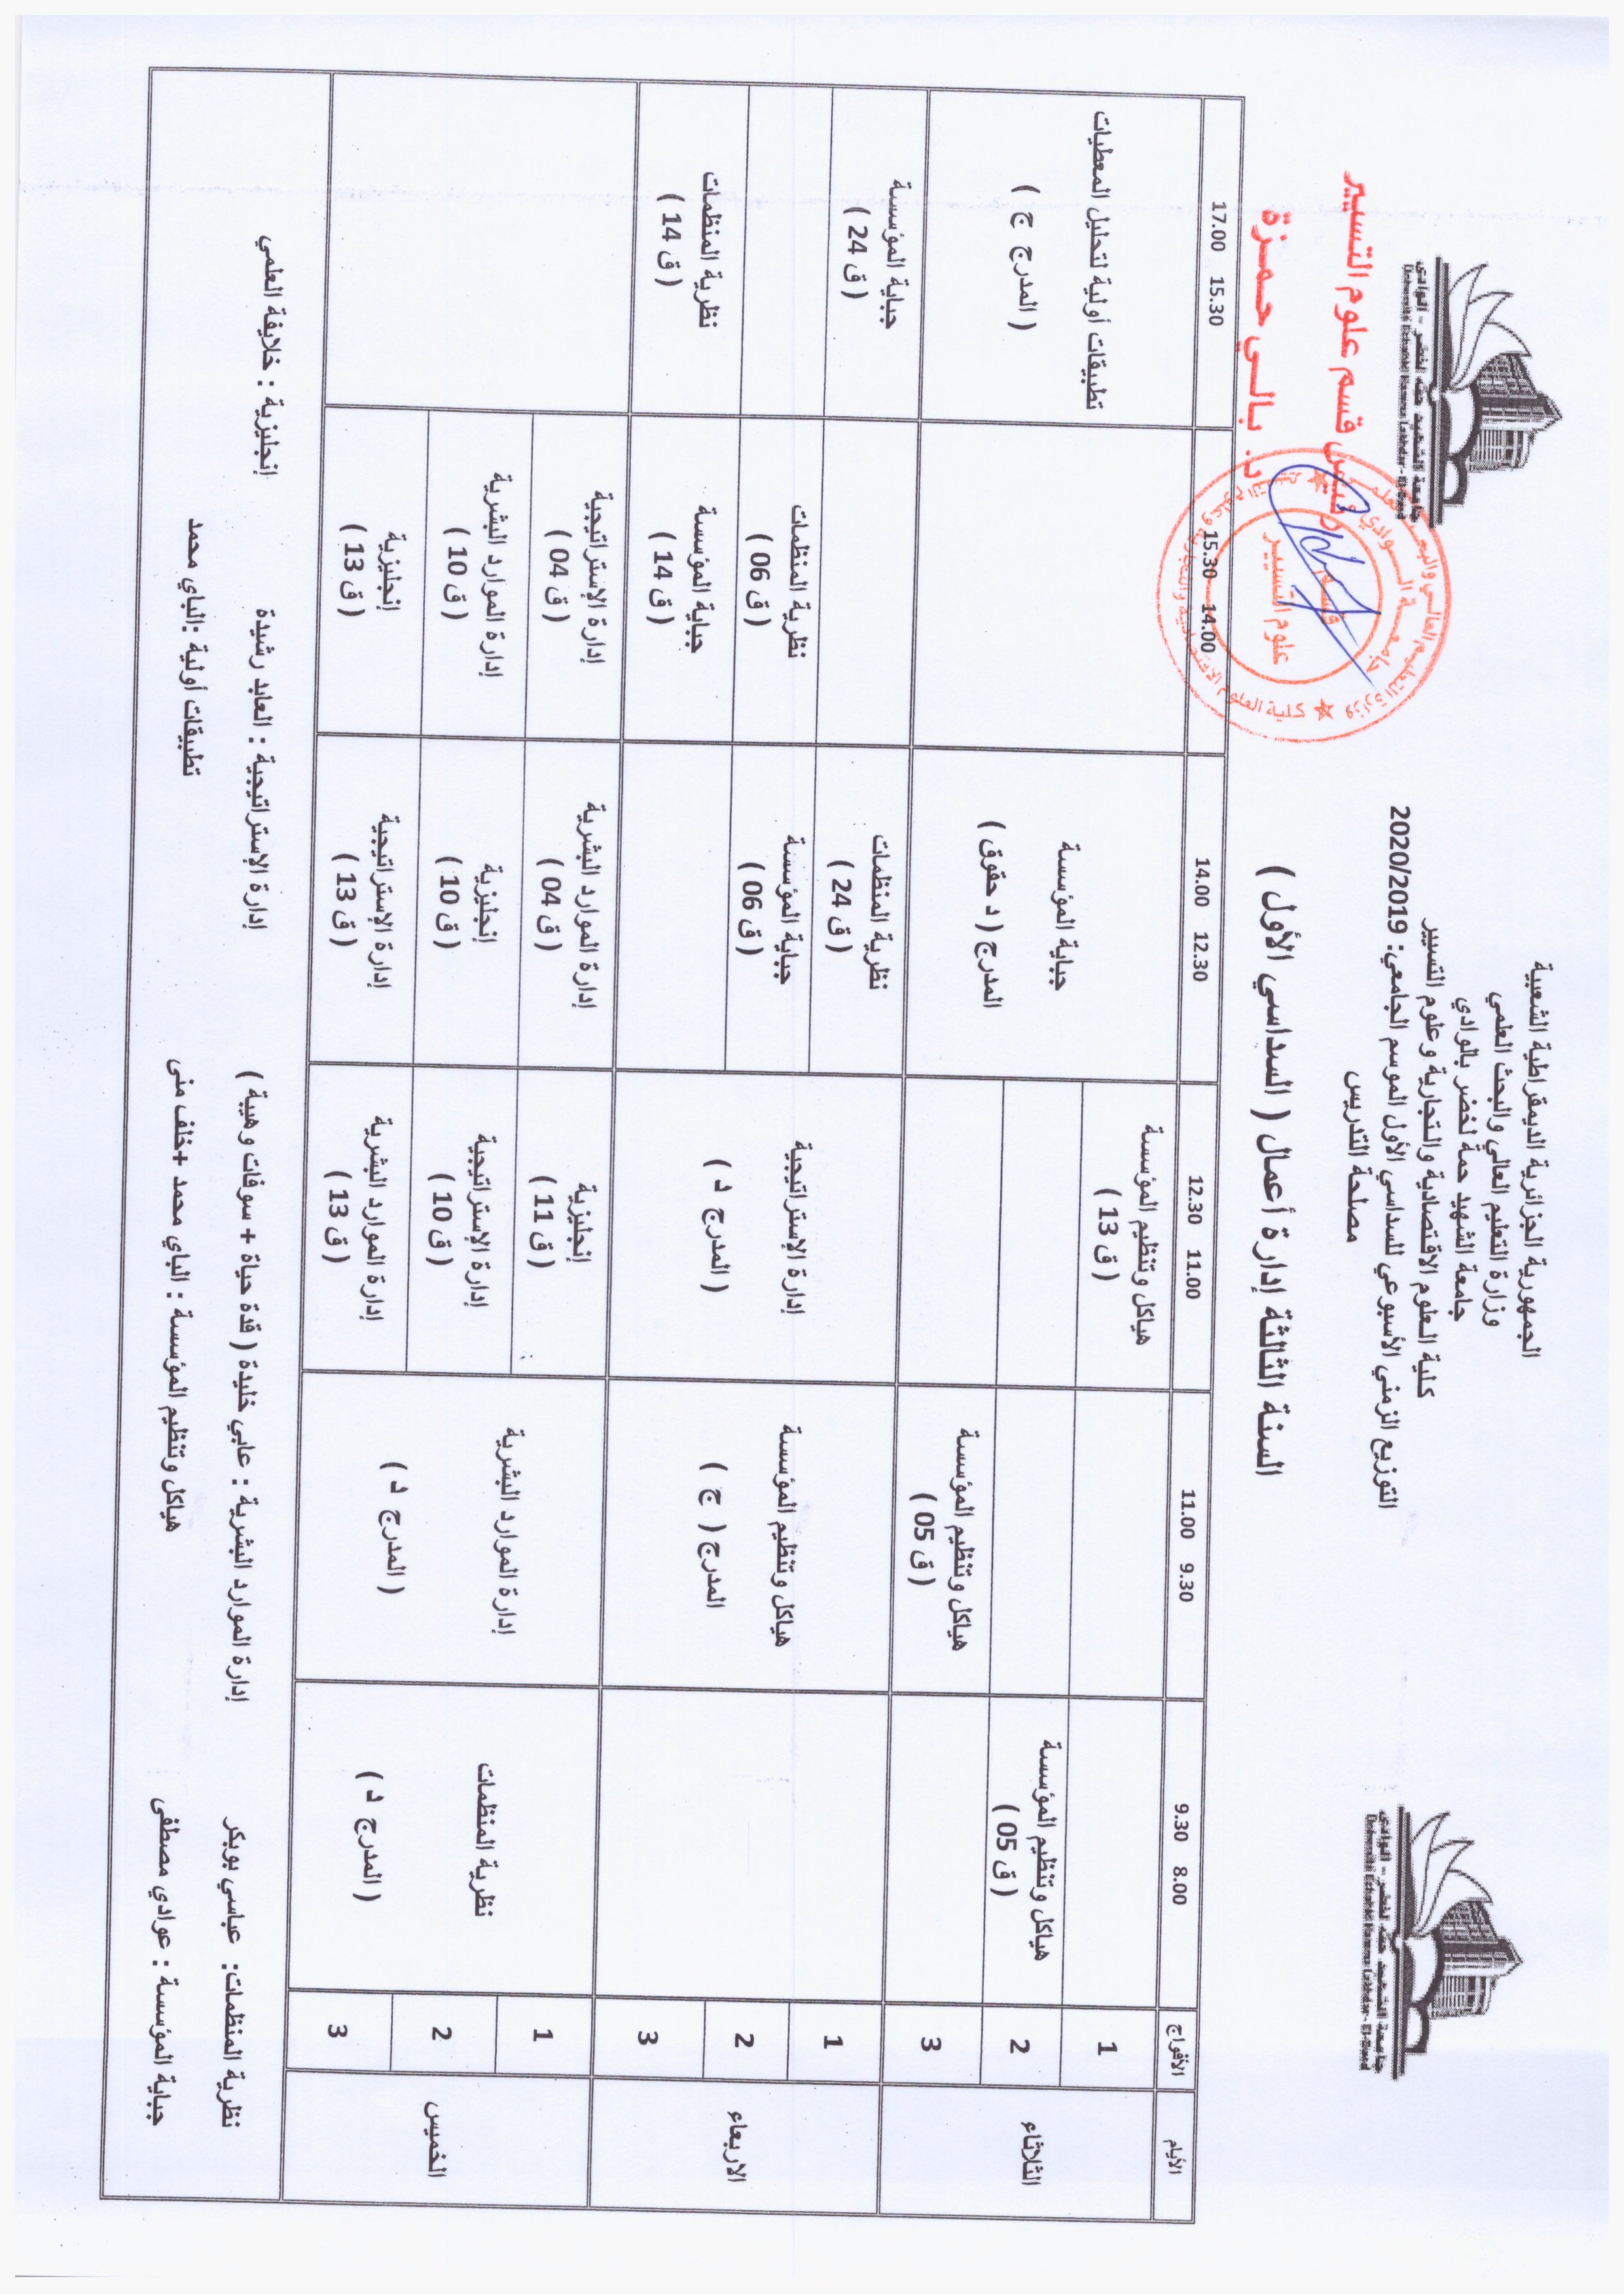 الجمهورية الجزائرية الديمقراطية الشعبية
وزارة التعليم العالي والبحث العلمي
جامعة الشهيد حمة لخضر بالوادي
كلية العلوم الاقتصادية والتجارية وعلوم التسيير
التوزيع الزمني الأسبوعي للسداسي الأول الموسم الجامعي: 2020/2019
مصلحة التدريس
جامعة الشهيد حمه لخضر - الوادي
Université Echahid Hamma Lakhdar - El-Oued
جامعة الشهيد حمه لخضر - الوادي
Université Echahid Hamma Lakhdar - El-Oued
السنة الثالثة إدارة أعمال ( السداسي الأول )
قسم علوم التسيير
د. بالي حمزة
علوم التسيير
الأيام
الأفواج
8.00 9.30
9.30 11.00
11.00 12.30
12.30 14.00
14.00 15.30
15.30 17.00
الثلاثاء
1
هياكل وتنظيم المؤسسة
( ق 13 )
2
هياكل وتنظيم المؤسسة
( ق 05 )
3
هياكل وتنظيم المؤسسة
( ق 05 )
جباية المؤسسة
المدرج ( د حقوق )
تطبيقات أولية لتحليل المعطيات
( المدرج ج )
الاربعاء
1
2
3
هياكل وتنظيم المؤسسة
المدرج ( ج )
إدارة الإستراتيجية
( المدرج د )
نظرية المنظمات
( ق 24 )
جباية المؤسسة
( ق 24 )
جباية المؤسسة
( ق 06 )
نظرية المنظمات
( ق 06 )
جباية المؤسسة
( ق 14 )
نظرية المنظمات
( ق 14 )
الخميس
1
2
3
نظرية المنظمات
( المدرج د )
إدارة الموارد البشرية
( المدرج د )
إنجليزية
( ق 11 )
إدارة الموارد البشرية
( ق 04 )
إدارة الإستراتيجية
( ق 04 )
إدارة الإستراتيجية
( ق 10 )
إنجليزية
( ق 10 )
إدارة الموارد البشرية
( ق 10 )
إدارة الموارد البشرية
( ق 13 )
إدارة الإستراتيجية
( ق 13 )
إنجليزية
( ق 13 )
نظرية المنظمات: عباسي بوبكر إدارة الموارد البشرية : عابي خليدة ( قدة حياة + سوفات وهيبة ) إدارة الإستراتيجية : العابد رشيدة إنجليزية : خلايفة العلمي
جباية المؤسسة : عوادي مصطفى هياكل وتنظيم المؤسسة : الباي محمد +خلف منى تطبيقات أولية :الباي محمد